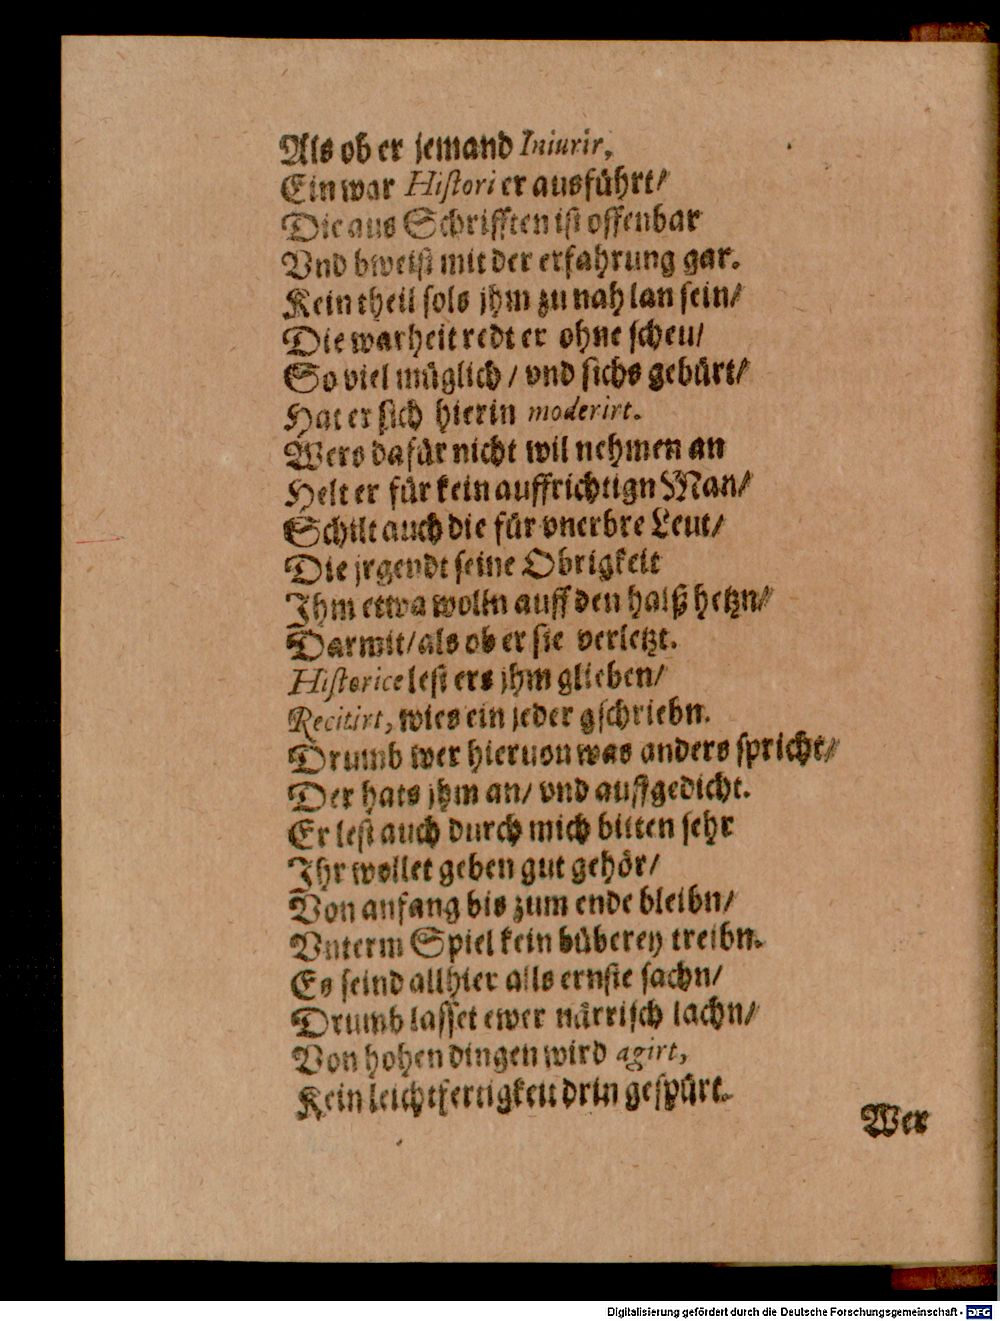 Als ob er jemand Iniurir,
Ein war Histori er ausführt/
Die aus Schrifften ist offenbar
Vnd bweist mit der erfahrung gar.
Kein theil sols jhm zu nah lan sein/
Die warheit redt er ohne scheu/
So viel müglich / vnd sichs gebürt/
Hat er sich hierin moderirt.
Wers dafür nicht wil nehmen an
Helt er für kein auffrichtign Man/
Schilt auch die für vnerbre Leut/
Die jrgendt seine Obrigkeit
Ihm etwa wolln auff den halß hetzn/
Darmit/ als ob er sie verletzt.
Historice lest ers jhm glieben/
Recitirt, wies ein jeder gschriebn.
Drumb wer hieruon was anders spricht/
Der hats jhm an/ vnd auffgedicht.
Er lest auch durch mich bitten sehr
Ihr wollet geben gut gehör/
Von anfang bis zum ende bleibn/
Vnterm Spiel kein büberey treibn.
Es seind allhier alls ernste sachn/
Drumb lasset ewer närrisch lachn/
Von hohen dingen wird agirt,
Kein leichtfertigkeit drin gespürt.
Wer
Digitalisierung gefördert durch die Deutsche Forschungsgemeinschaft - DFG